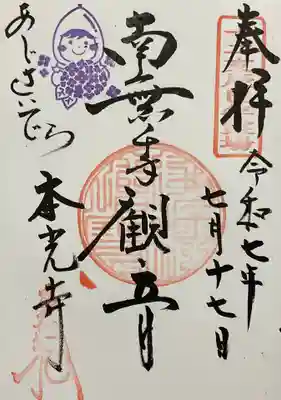 奉拝
令和七年
七月十七日
南無千手觀音
あじさいでら
本光寺